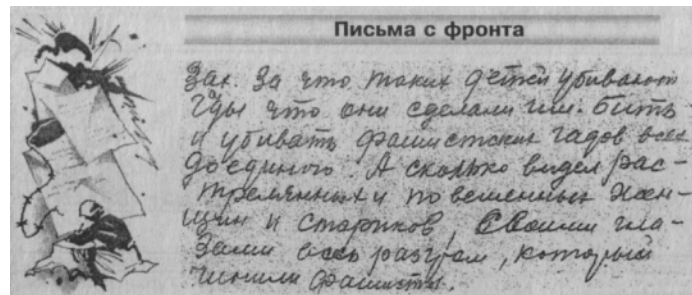 Письма с фронта
Зах. За что таких детей убивают
гады что они сделали им. бить
и убивать фашистских гадов всех
до единого. А сколько видел рас-
трелянных и повешенных жен-
щин и стариков, своими гла-
зами весь разгром, который
чинили фашисты.